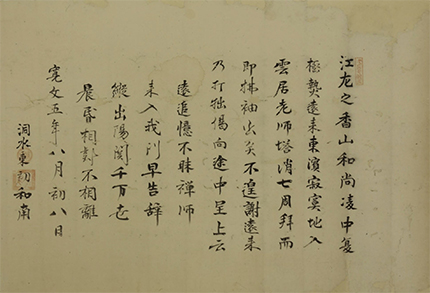 江左之香山和尚凌中夏
極熱遠来東濱寂寞地入
雲居老师塔消七周拜而
即拂袖出矣不遑謝遠来
乃打拙偈向途中呈上云
遠追憶不昧禅师
来入我門早告辞
縦出陽関千万去
晨昏相對不相離
寛文五年八月初八日
洞水東初和南